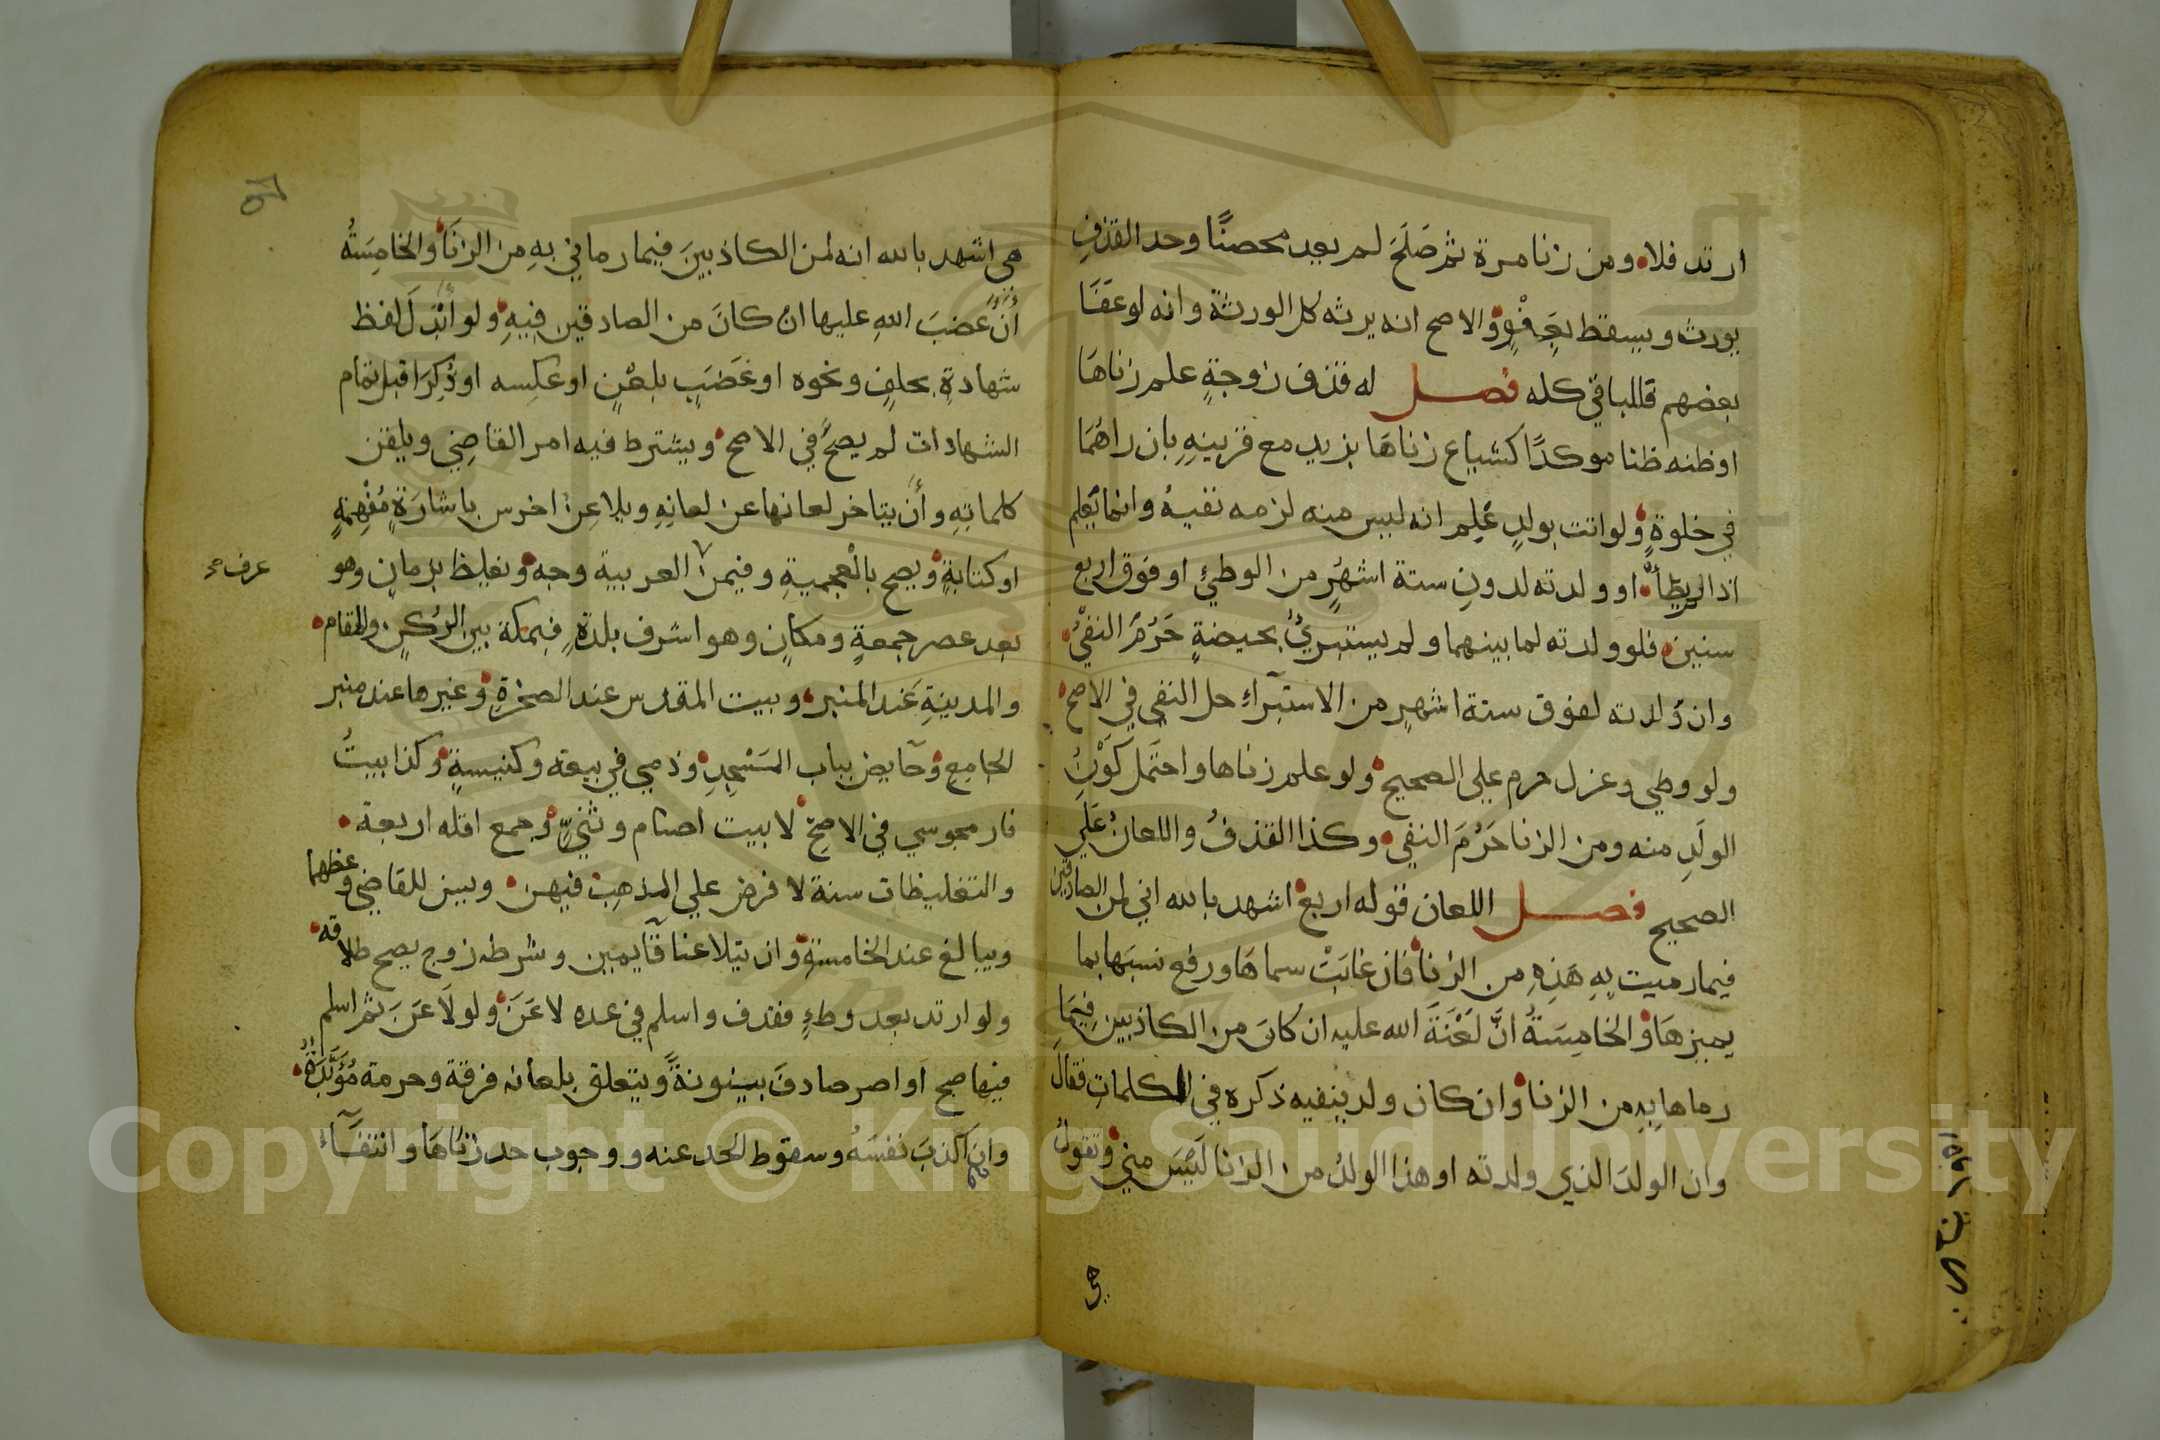 ارتد فلا ومن زنا مرة ثم صَلَحَ لم يعد محصنًا وحد القذفِ
يورث ويسقط بِعَفْوٍ والاصح انه يرثه كل الورثة وانه لو عَفَا
بعضهم فللباقي كله فصل له قذف زوجةٍ علم زناهَا
او ظنه ظنا موكدًا كشياع زناهَا بزيد مع قرينةٍ بان راهُمَا
في خلوةٍ ولو اتت بولدٍ عُلِم انه ليس منه لزمه نفيهُ وانما يُعلم
اذا لم يطأ او ولدته لدونِ ستة اشهُرٍ من الوطئِ او فوق اربع
سنين فلو ولدته لما بينهما ولم يستبرئْ بحيضةٍ حَرُمَ النفيُ
وان وَلدته لفوق ستة اشهرٍ من الاستبراءِ حل النفي في الاصح
ولو وطي وعزل حرم علي الصحيح ولو علم زناها واحتَمل كَوْنُ
الولَدِ منه ومن الزنا حَرُمَ النفي وكذا القذفُ واللعانُ عَلَي
الصحيح فصل اللعان قوله اربع اشهد بالله اني لمن الصادقين
فيما رميت بِهِ هَذِهِ من الزنا فان غابَتْ سماهَا ورفع نسبَها بما
يميزهَا والخامِسَةُ انَّ لَعْنَةَ الله عليه ان كانَ من الكاذبين فِيمَا
رماها بِهِ من الزنا وان كان ولد ينفيه ذكره في الكلماتِ فقالَ
وان الولدَ الذي ولدته او هذا الولدُ من الزنا لَيْسَ مني وتقولُ
هي
هي اشهد بالله انه لمن الكاذبينَ فيما رماني بهِ من الزنَا والخامِسَةُ
أنَّ غضبَ اللهِ عليها ان كانَ من الصادقين فِيهِ ولو أُبْدِلَ لَفظ
شهادةِ بحلِفٍ ونحوه او غَضَبٍ بلعْنٍ او عكِسه او ذُكِرَا قبل تمام
الشهادات لم يصحَّ في الاصح ويشترط فيه امر القاضِي ويلقن
كلماتِهِ وأن يتاخر لعانها عن لعانِهِ ويلاعِن اخرس باشارَةٍ مُفْهِمَةٍ
او كتابةٍ ويصح بالعجميةِ وفيمن العربية وجه ويغلظ بزمانٍ وهو
عرف صح
بعد عصر جمعةٍ ومكانٍ وهو اشرف بلدهِ فبمكة بين الرُكنِ والمقام
والمدينةِ عَند المنبر وبيت المقدس عند الصخرةِ وغيرها عند منبر
الجامِعِ وحَايض بباب المَسْجِدِ وذمي في بيعة وكنيسةٍ وكذا بيتُ
نار مجوسي في الاصحِ لا بيت اصنام وثنيّ وجمع اقله اربعة
والتغليظات سنة لا فرض علي المذهب فيهن ويسن للقاضي وعظهما
ويبالغ عند الخامسةِ وان يتلاعنا قآيمين وشرطه زوج يصح طلاقه
ولو ارتد بعد وطءٍ فقذف واسلم في عده لاعَنَ ولو لَاعَنَ ثم اسلم
فيها صح او اصر صادفَ بينونةً ويتعلق بلعانه فرقة وحرمة مُؤَبَّدَةٌ
وان اكذبَ نفسَهُ وسقوط الحد عنه ووجوب حد زنَاهَا وانتفآءُ
Copyright © King Saud University